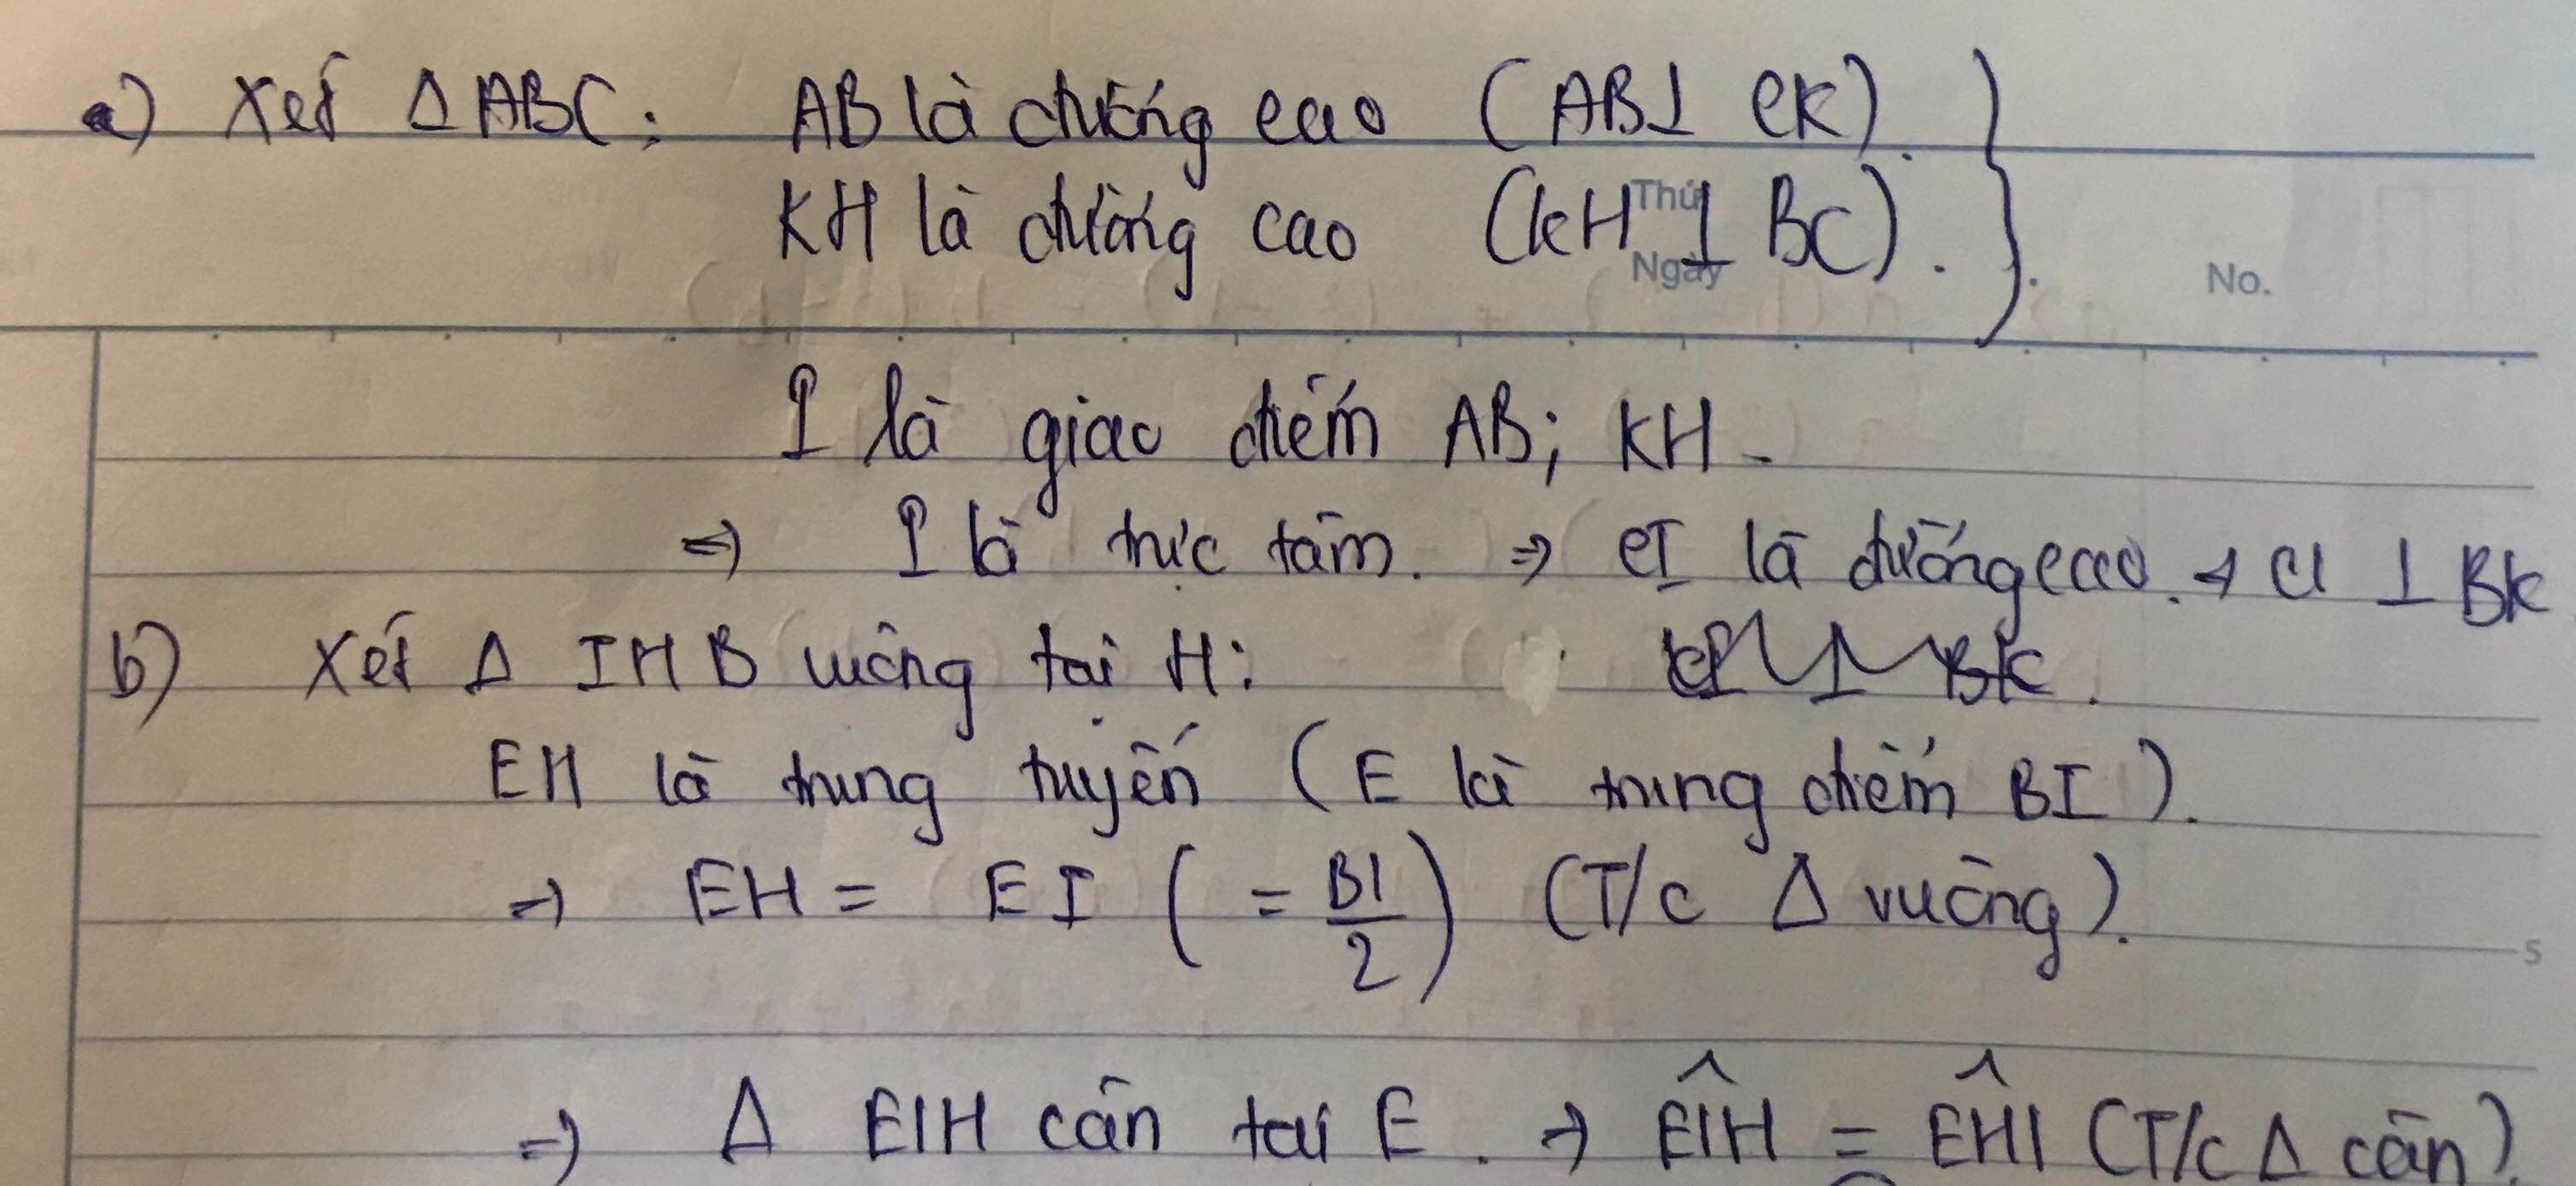 a) Xét Δ ABC: AB là đường cao (AB ⊥ CK).
KH là đường cao (KH ⊥ BC).
Thứ
Ngày
No.
I là giao điểm AB; KH.
=> I là trực tâm. => CI là đường cao. => CI ⊥ BK
b) Xét Δ IHB vuông tại H:
EH là trung tuyến (E là trung điểm BI).
=> EH = EI (= BI/2) (T/c Δ vuông).
=> Δ EIH cân tại E. => ÊIH = ÊHI (T/c Δ cân).